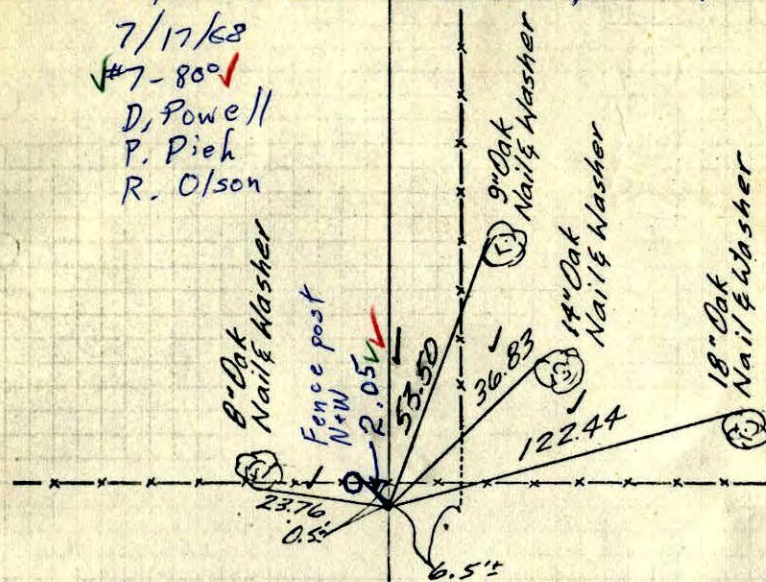 7/17/68
✓#7-80° ✓
D. Powell
P. Pieh
R. Olson
8" Oak
Nail & Washer
Fence post
N+W
2.05 ✓✓
53.50 ✓
9" Oak
Nail & Washer
36.83 ✓
14" Oak
Nail & Washer
122.44 ✓
18" Oak
Nail & Washer
23.76 ✓
0.5'±
6.5'±